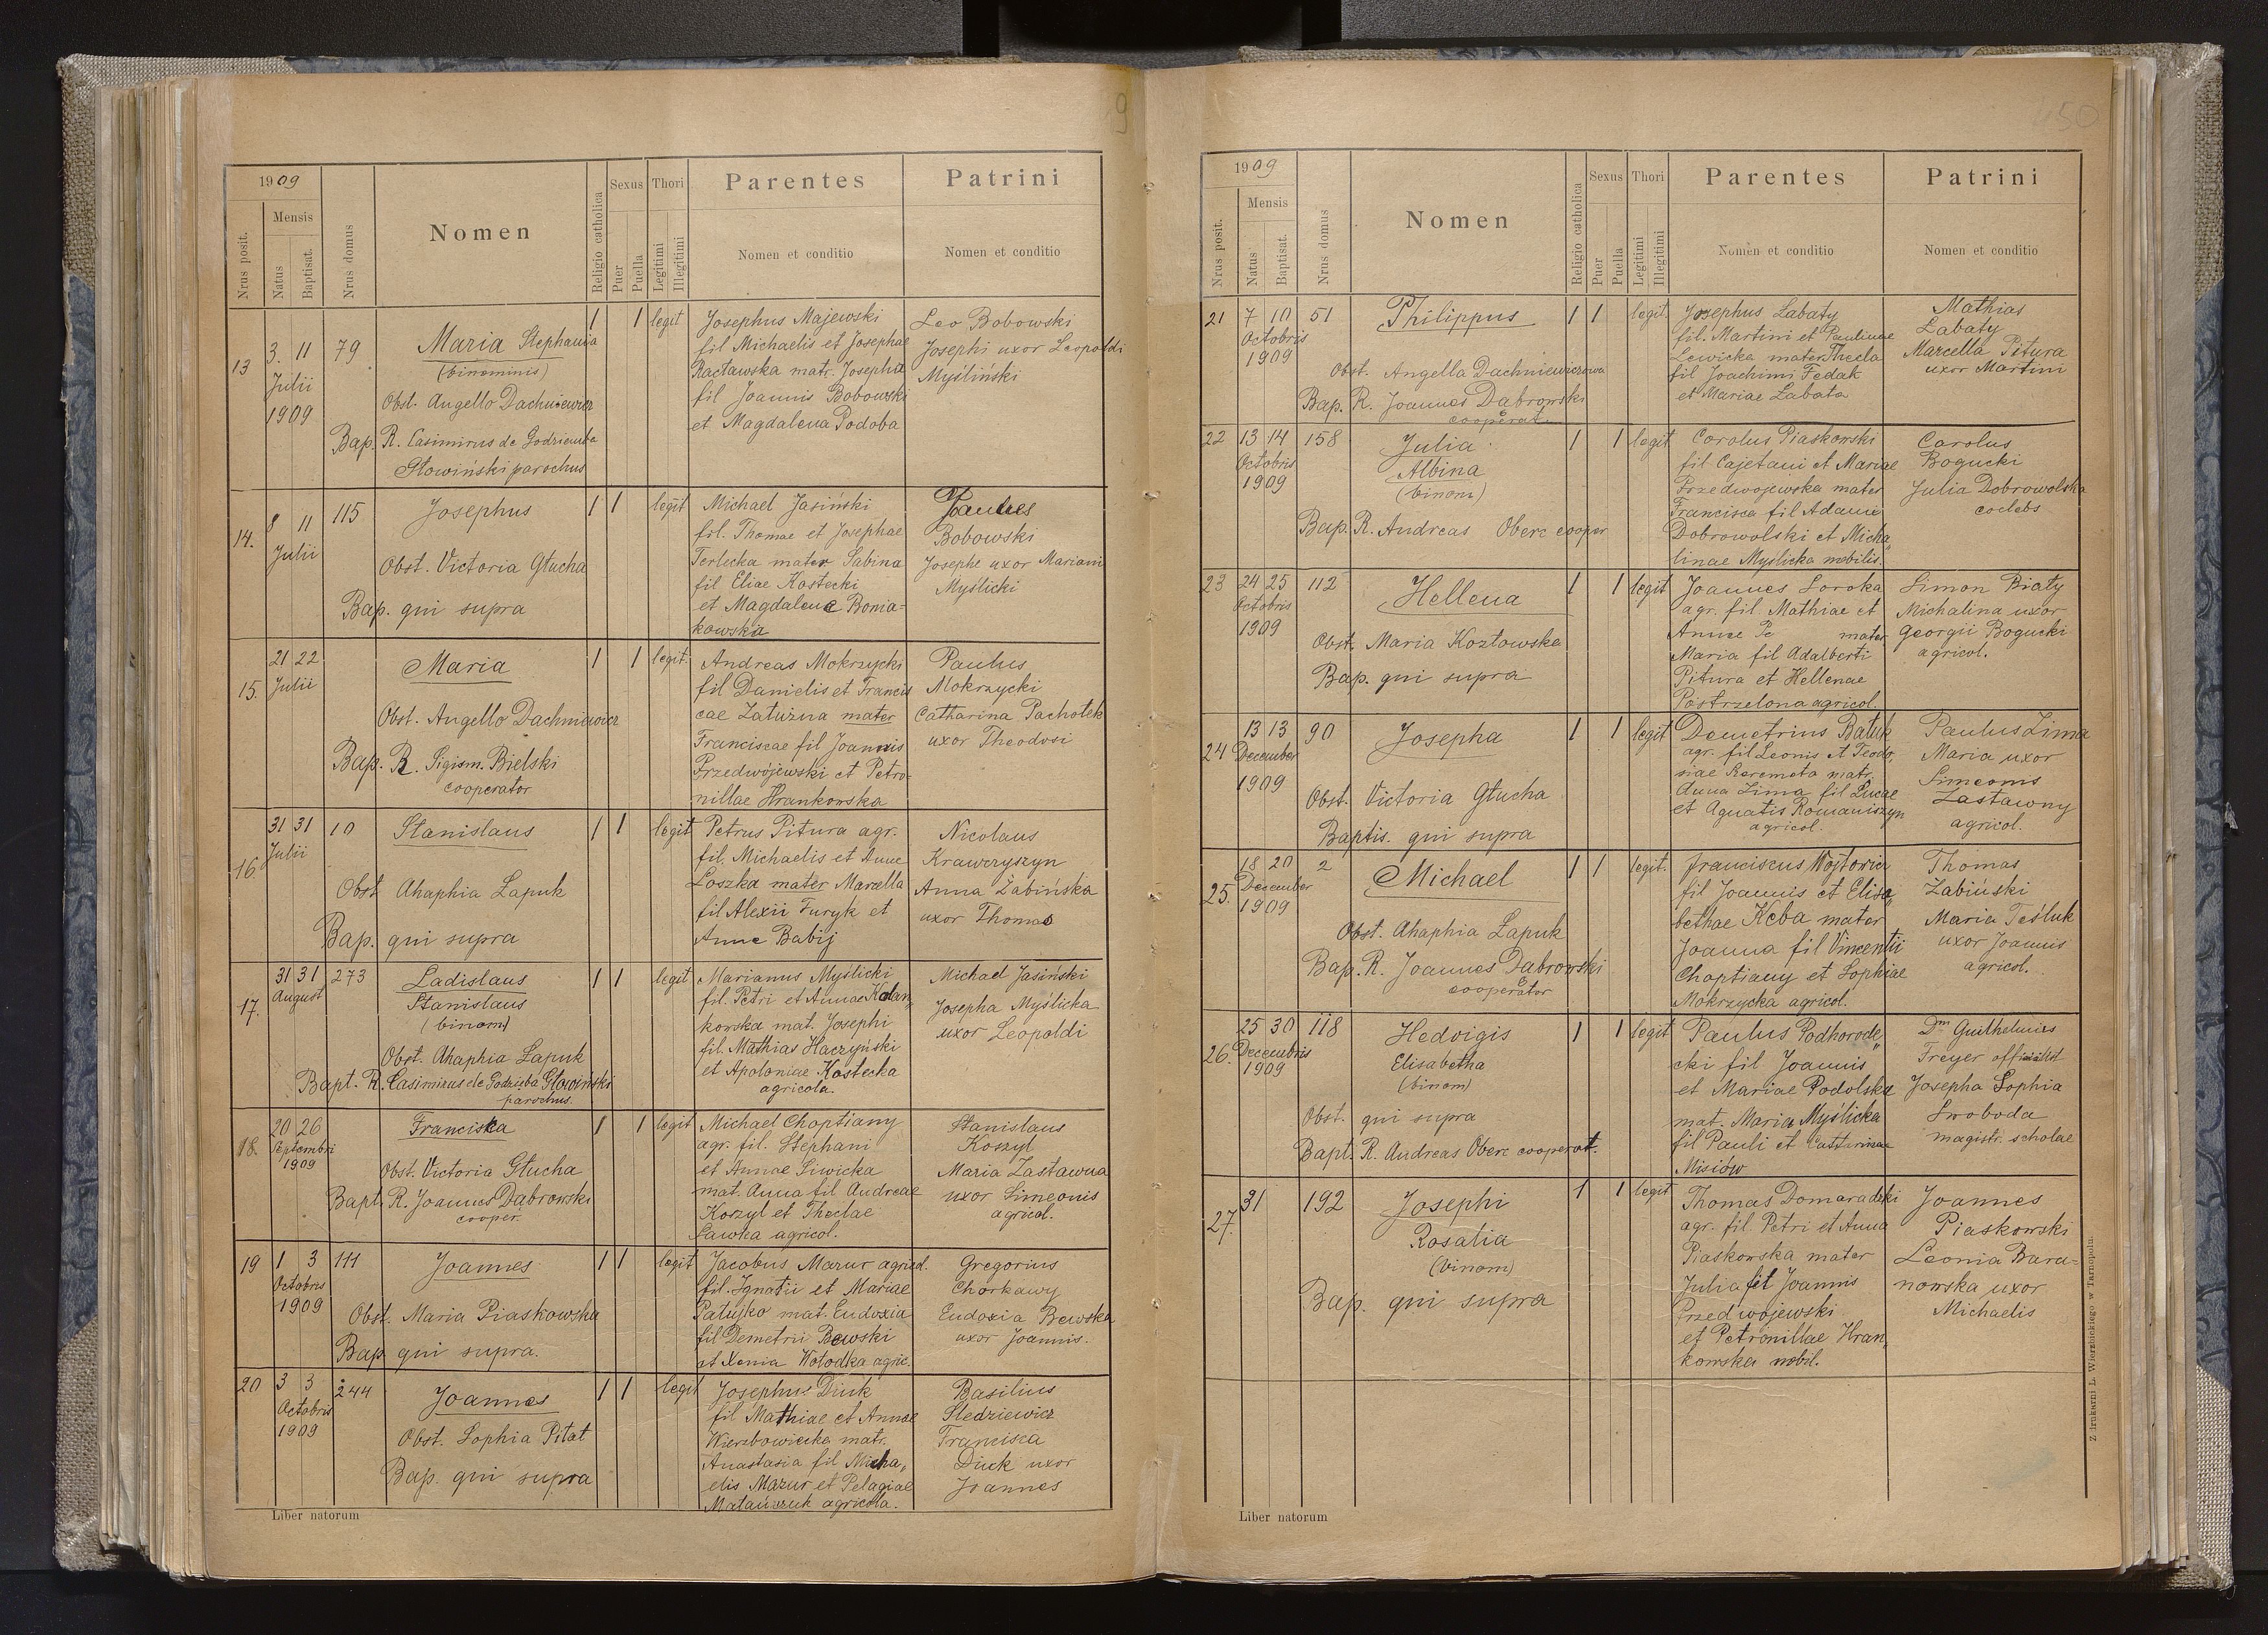 9
1909
Nrus posit.
Mensis
Natus
Baptisat.
Nrus domus
Nomen
Religio catholica
Sexus
Puer
Puella
Thori
Legitimi
Illegitimi
Parentes
Nomen et conditio
Patrini
Nomen et conditio
13
3. 11
Julii
1909
79
Maria Stephania
(binominis)
Obst. Angello Dachniewicz
Bap. R. Casimirus de Godziemba
Słowiński parochus
1 1 legit
Josephus Majewski
fil Michaelis et Josephae
Racławska matr. Josepha
fil Joannis Bobowski
et Magdalena Podoba
Leo Bobowski
Josephi uxor Leopoldi
Myśliński
14.
8 11
Julii
115
Josephus
Obst. Victoria Głucha
Bap. qui supra
1 1 legit
Michael Jasiński
fil. Thomae et Josephae
Terlecka mater Sabina
fil Eliae Kostecki
et Magdalena Bonia-
kowska
Joannes
Bobowski
Josephe uxor Mariani
Myślicki
15.
21 22
Julii
Maria
Obst. Angello Dachniewicz
Bap. R. Sigism. Bielski
cooperator
1 1 legit.
Andreas Mokrzycki
fil Danielis et Francis
cae Załużna mater
Franciscae fil Joannis
Przedwójewski et Petro-
nillae Hrankowska
Paulus
Mokrzycki
Catharina Pachołek
uxor Theodosi
16.
31 31
Julii
10
Stanislaus
Obst Ahaphia Łapuk
Bap. qui supra
1 1 legit
Petrus Pitura agr.
fil. Michaelis et Anne
Loszka mater Marcella
fil Alexii Furyk et
Anne Babij
Nicolaus
Krawczyszyn
Anna Żabińska
uxor Thomas
17.
31 31
August
273
Ladislaus
Stanislaus
(binom)
Obst. Ahaphia Łapuk
Bapt. R. Casimirus de Godzięba Słowiński
parochus.
1 1 legit
Marianus Myślicki
fil. Petri et Annae Kolan„
kowska mat. Josephi
fil. Mathias Haczyński
et Apoloniae Kostecka
agricola.
Michael Jasiński
Josepha Myślicka
uxor Leopoldi
18.
20 26
Septembri
1909
Franciska
Obst. Victoria Głucha
Bapt. R. Joannes Dąbrowski
cooper.
1 1 legit
Michael Choptiany
agr. fil. Stephani
et Annae Siwicka
mat. Anna fil Andreae
Korzyl et Theclae
Sawka agricol.
Stanislaus
Koszyl
Maria Zastawna
uxor Simeonis
agricol.
19
1 3
Octobris
1909
111
Joannes
Obst. Maria Piaskowska
Bap qui supra.
1 1 legit
Jacobus Mazur agricol.
fil. Ignatii et Mariae
Patyjko mat. Eudoxia
fil Demetrii Bewski
et Xenia Wołodka agric.
Gregorius
Chorkawy
Eudoxia Bewska
uxor Joannis.
20
3 3
Octobris
1909
244
Joannes
Obst. Sophia Pitat
Bap. qui supra
1 1 legit
Josephus Diuk
fil Mathiae et Annae
Wierzbowiecka matr.
Anastasia fil Micha„
elis Mazur et Pelagiae
agricola.
Basilius
Sledziewicz
Francisca
Diuk uxor
Joannes
Liber natorum
450
1909
Nrus posit.
Mensis
Natus
Baptisat.
Nrus domus
Nomen
Religio catholica
Sexus
Puer
Puella
Thori
Legitimi
Illegitimi
Parentes
Nomen et conditio
Patrini
Nomen et conditio
21
7 10
Octobris
1909
51
Philippus
Obst. Angella Dachniewiczowa
Bap. R. Joannes Dąbrowski
cooperat
1 1 legit.
Josephus Labaty
fil. Martini et Paulinae
Lewicka mater Thecla
fil Joachimi Fedak
et Mariae Labata
Mathias
Labaty
Marcella Pitura
uxor Martini
22
13 14
Octobris
1909
158
Julia
Albina
(binom)
Bap. R. Andreas Oberc cooper
1 1 legit
Carolus Piaskowski
fil Cajetani et Mariae
Przedwojewska mater
Francisca fil Adami
Dobrowolski et Micha„
linae Myślicka nobilis.
Carolus
Bogucki
Julia Dobrowolska
coelebs
23
24 25
Octobris
1909
112
Hellena
Obst. Maria Kozłowska
Bap. qui supra
1 1 legit
Joannes Soroka
agr. fil. Mathiae et
Annae Pe mater
Maria fil Adalberti
Pitura et Hellenae
Postrzelona agricol.
Simon Biały
Michalina uxor
Georgii Bogucki
agricol.
24
13 13
December
1909
90
Josepha
Obst. Victoria Głucha
Baptis. qui supra
1 1 legit
Demetrius Batuk
agr. fil Leonis et Teodo,
siae Keremeta matr.
Anna Zima fil Lucae
et Agnatis Romaniszyn
agricol.
Paulus Zima
Maria uxor
Simeonis
Zastawny
agricol.
25.
18 20
December
1909
2
Michael
Obst. Ahaphia Łapuk
Bap. R. Joannes Dąbrowski
cooperator
1 1 legit.
Franciscus Wojtowicz
fil Joannis et Elisa„
bethae Keba mater
Joanna fil Vincentii
Choptiany et Sophiae
Mokrzycka agricol.
Thomas
Żabiński
Maria Teśluk
uxor Joannis
agricol.
26.
25 30
Decembris
1909
118
Hedvigis
Elisabetha
(binom)
Obst. qui supra
Bapt. R. Andreas Oberc cooperat.
1 1 legit
Paulus Podhorode„
cki fil Joannis
et Mariae Podolska
mat. Maria Myślicka
fil Pauli et Catherinae
Misiów
Dm Guilhelmus
Freyer
Josepha Sophia
Swoboda
magistr. scholae
27.
31
192
Josephi
Rosalia
(binom)
Bap. qui supra
1 1 legit
Thomas Domaradzki
agr. fil. Petri et Anna
Piaskowska mater
Julia fil Joannis
Przedwojewski
et Petronillae Hran„
kowska nobil.
Joannes
Piaskowski
Leonia Bara-
nowska uxor
Michaelis
Liber natorum
Z drukarni L. Wierzbickiego w Tarnopolu.